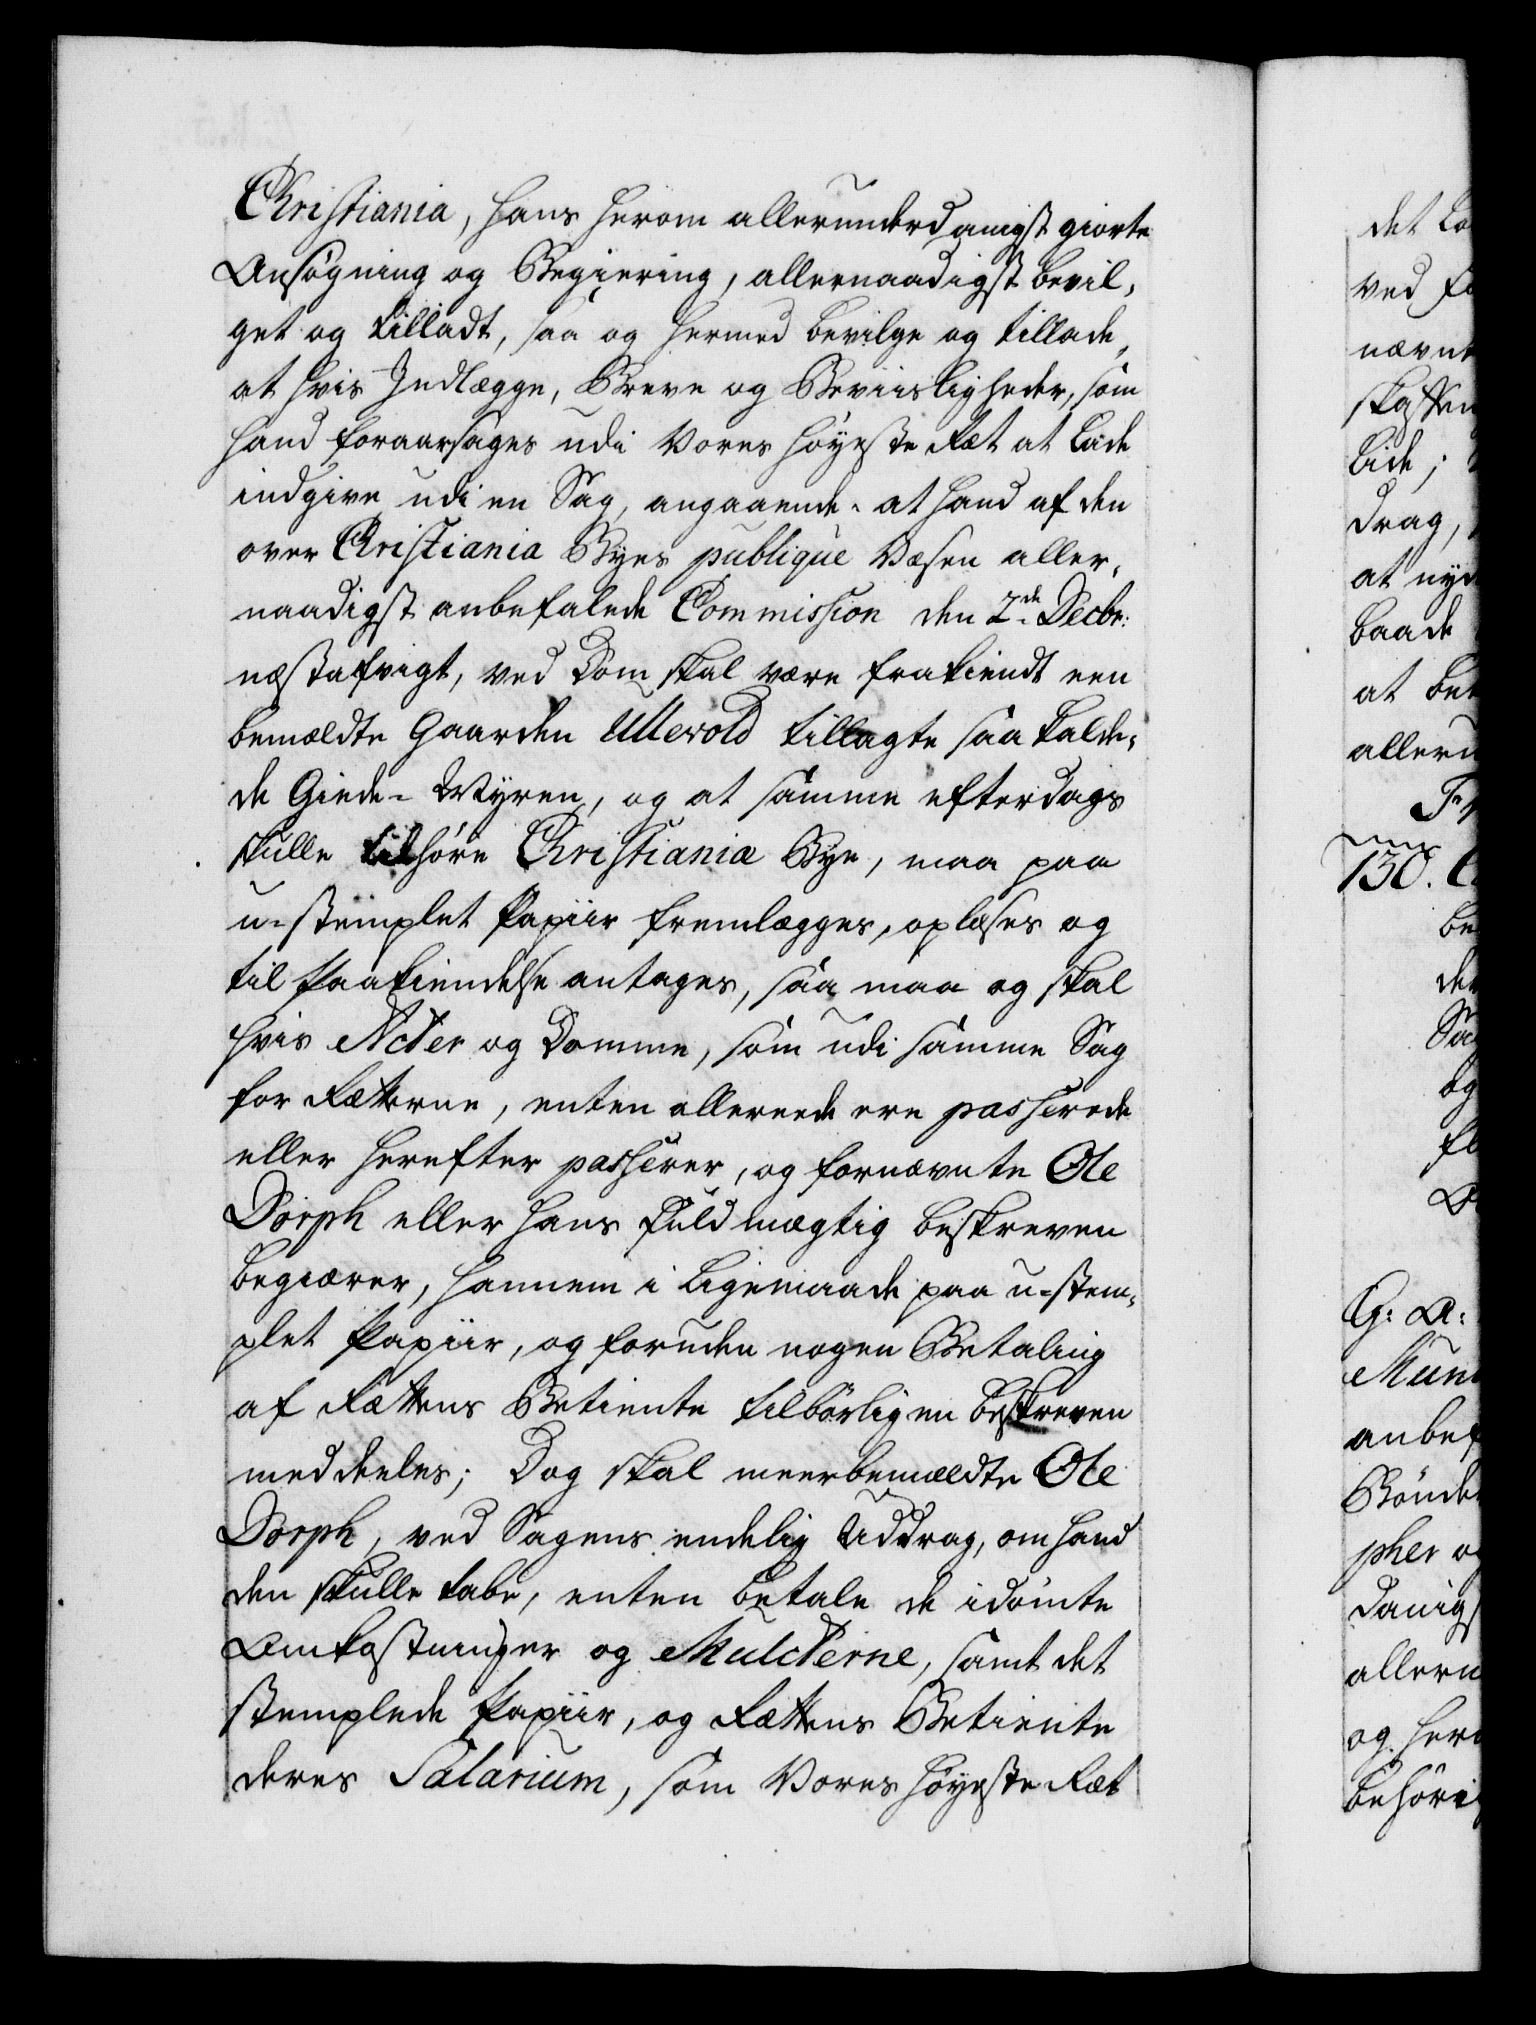 Christiania, hans herom allerunderdanigst giorte
Ansøgning og Begiering, allernaadigst bevil,
get og tilladt, saa og hermed bevilge og tillade,
at hvis Indlægge, Breve og Beviisligheder, som
hand foraarsages udi Vores Høyeste Ræt at lade
indgive udi en Sag, angaaende. at hand af den
over Christiania Byes publique Væsen aller,
naadigst anbefalede Commission den 2de Decbr:
næstafvigt, ved Dom skal være frakiendt een
bemældte Gaarden Ullevold tillagte saa kalde,
de Giede-Myren, og at samme efterdags
skulle tilhøre Christiania Bye, maa paa
u-stemplet Papiir fremlægges, oplæses og
til Paakiendelse antages, saa maa og skal
hvis Acter og Domme, som udi samme Sag
for Rætterne, enten allereede ere passerede
eller herefter passerer, og fornævnte Ole
Dorph eller hans Fuldmægtig beskreven
begiærer, hannem i ligemaade paa u-stem,
plet Papiir, og foruden nogen Betaling
af Rættens Betiente tilbørligen beskreven
meddeeles; Dog skal meerbemældte Ole
Dorph, ved Sagens endelig Uddrag, om hand
den skulle tabe, enten betale de idømte
Omkostninger og Mulcterne, samt det
stemplede Papiir, og Rættens Betiente
deres Salarium, som Vores Høyeste Ræt
det
ved
nævnt
lide;
drag,
at
baade
at
130.
Sag
og
G: A:
anbef
Bønder
pher
danigs
allern
og her
behøri